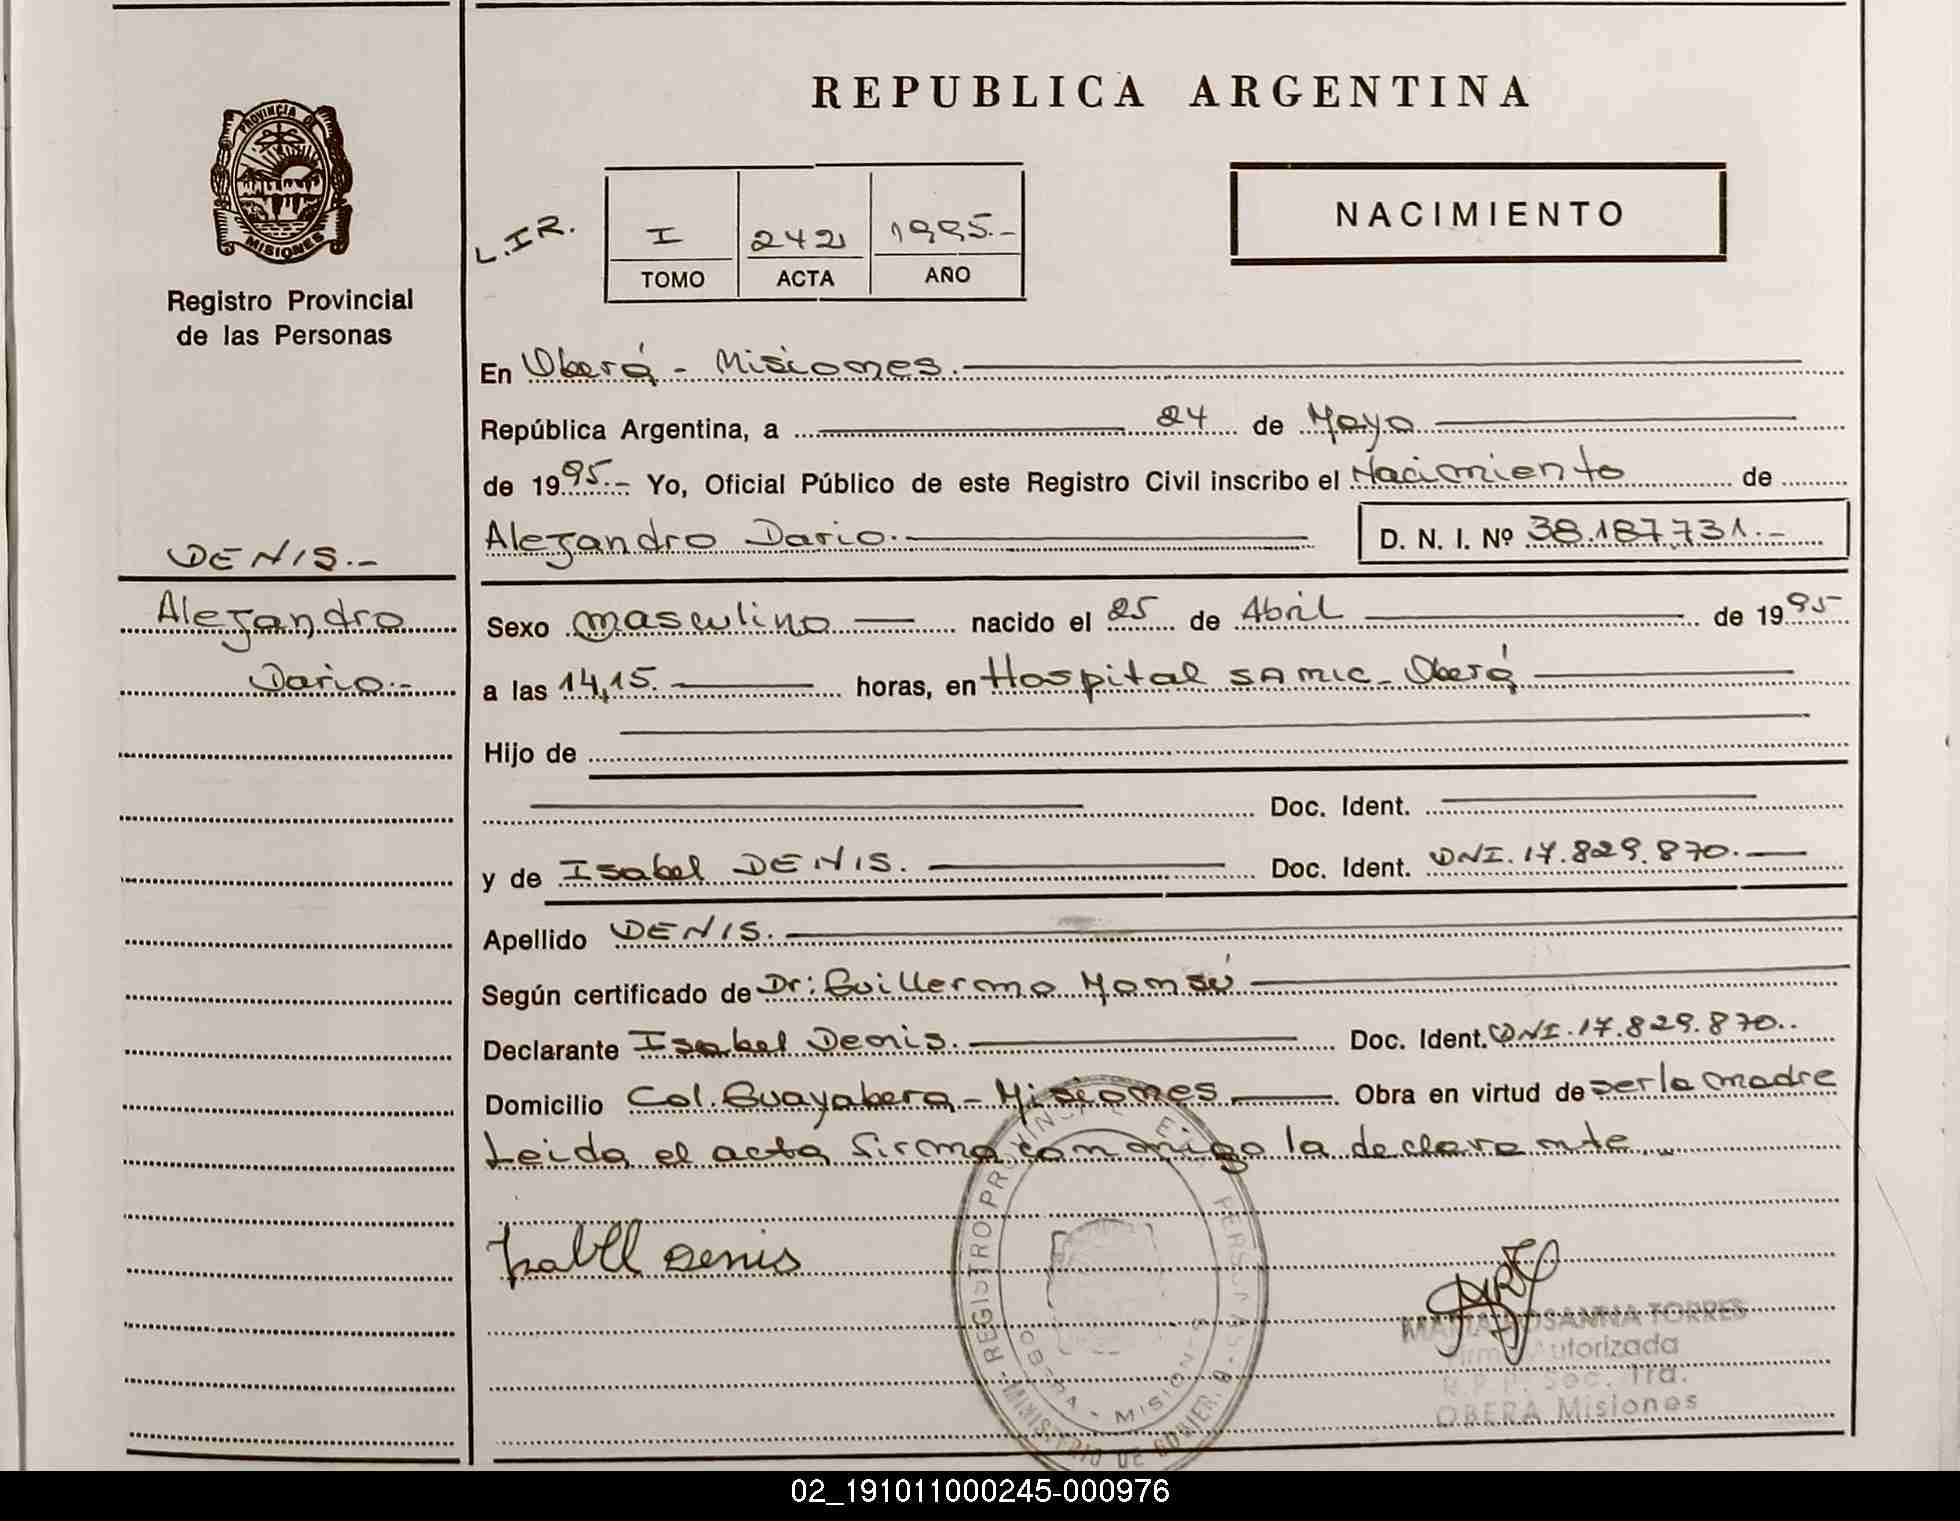 REPUBLICA ARGENTINA
PROVINCIA DE
MISIONES
Registro Provincial
de las Personas
L.I.R.
I 242 1995.-
TOMO ACTA AÑO
NACIMIENTO
En Oberá - Misiones.
República Argentina, a 24 de Mayo
de 1995.- Yo, Oficial Público de este Registro Civil inscribo el Nacimiento de
Alejandro Dario.
D. N. I. Nº 38.187.731.-
DENIS.-
Alejandro
Dario.-
Sexo masculino nacido el 25 de Abril de 1995
a las 14,15. horas, en Hospital SAMIC - Oberá
Hijo de
Doc. Ident.
y de Isabel DENIS. Doc. Ident. DNI. 17.829.870.
Apellido DENIS.
Según certificado de Dr: Guillermo
Declarante Isabel Denis. Doc. Ident. DNI. 17.829.870..
Domicilio Col. Guayabera - Misiones Obra en virtud de ser la madre
Leida el acta firma conmigo la declarante.
Isabel Denis
REGISTRO PROVINCIAL PERSONAS
MINISTERIO DE GOBIERNO
OBERA - MISIONES
MARIA ROSANNA TORRES
Firma Autorizada
R.P.P. Sec. 1ra.
OBERA Misiones
02_191011000245-000976